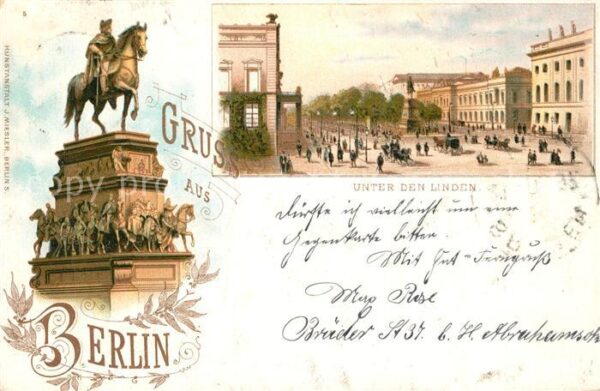 GRUSS
AUS
BERLIN
KUNSTANSTALT J. MIESLER, BERLIN S.
UNTER DEN LINDEN.
Dürfte ich vielleicht um eine
Gegenkarte bitten.
Mit Gut-Ferngruß
Max Rose
Brüder St 37. b. H. Abrahamsohn